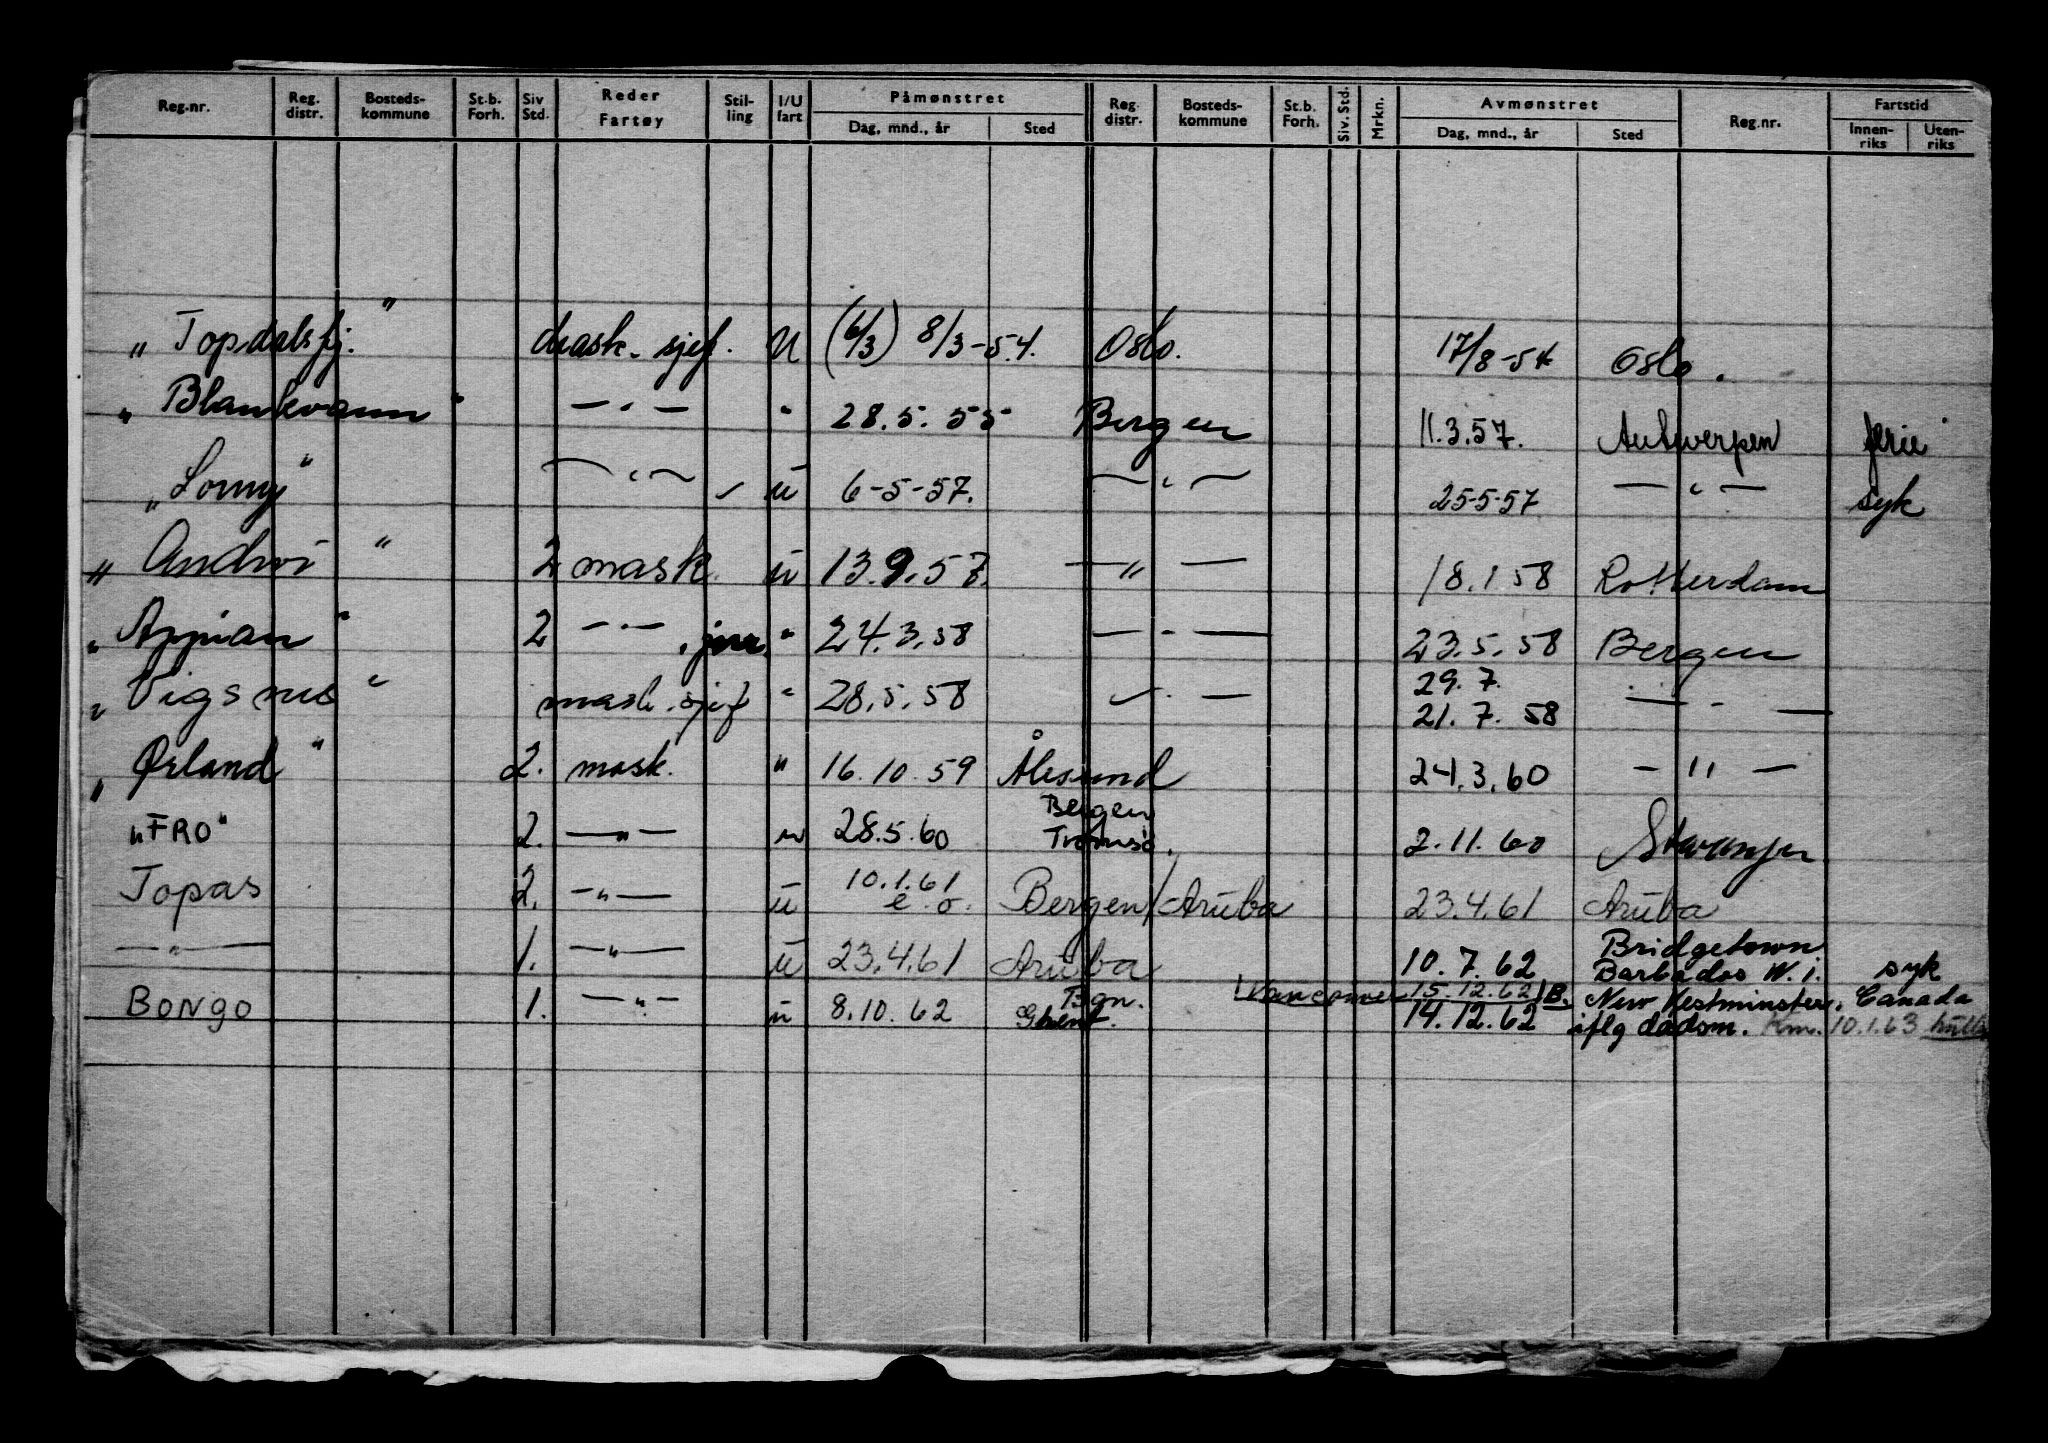 Reg.nr. Reg. distr. Bosteds- kommune St.b. Forh. Siv Std. Reder Fartøy Stil- ling I/U fart Påmønstret Dag, mnd., år Sted Reg. distr. Bosteds- kommune St.b. Forh. Siv. Std. Mrkn. Avmønstret Dag, mnd., år Sted Reg.nr. Fartstid Innen- riks Uten- riks
"Topdalsfj." mask. sjef. U (6/3) 8/3-54. Oslo. 17/8-54 Oslo.
"Blankvann" — " — " 28.5.55 Bergen 11.3.57. Antwerpen ferie
"Lonny" — " — u 6-5-57. — " — 25-5-57 — " — syk
"Andwi" 2 mask. u 13.9.57. — " — 18.1.58 Rotterdam
"Appian" 2 — " — jnr. " 24.3.58 — " — 23.5.58 Bergen
"Vigsnes" mask. sjef " 28.5.58 — " — 29.7. 21.7.58 — " —
"Ørland" 2. mask. " 16.10.59 Ålesund 24.3.60 — " —
"FRO" 2. — " — u 28.5.60 Bergen Tromsö. 2.11.60 Stavanger
Topas 2. — " — u 10.1.61 e.o. Bergen/Aruba 23.4.61 Aruba
— " — 1. — " — u 23.4.61 Aruba 10.7.62 Bridgetown Barbados W.i. syk
BONgO 1. — " — u 8.10.62 Bgn. Ghent. (Vancouver 15.12.62) B. New Westminster, Canada
14.12.62 iflg dadom. Km. 10.1.63